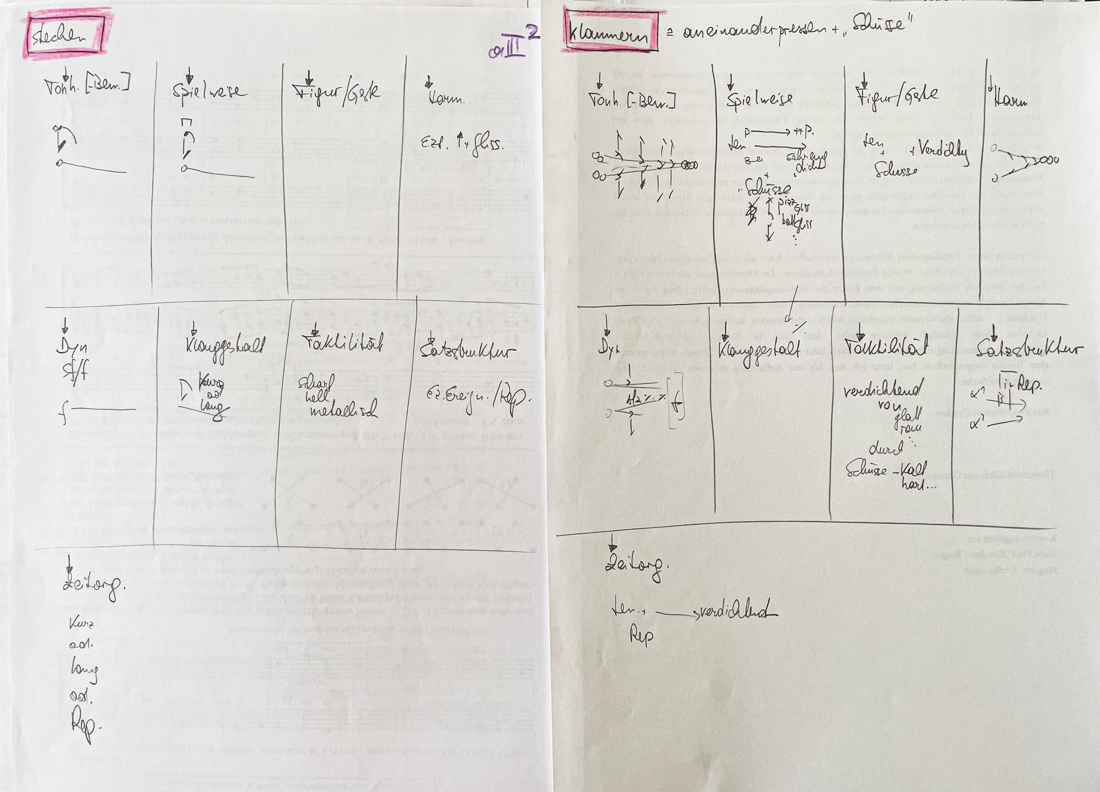 stechen
aIII²
Tonh. [-Bew.]
Spielweise
Figur/Geste
Harm.
Ezt. ↑ + gliss.
Dyn
sf/f
f
Klanggestalt
kurz
od
lang
Taktilität
scharf
hell
metallisch
Satzstruktur
Ez. Ereign. / Rep.
Zeitorg.
kurz
od.
lang
od.
Rep.
klammern = aneinanderpressen + „Schüsse"
Tonh. [-Bew.]
Spielweise
p → ++p.
ten →
+
„Schüsse
pizz
gliss
:
Figur/Geste
ten + Verdichtg
+
Schüsse
Harm
Dyn
Klanggestalt
·/.
Taktilität
verdichtend
von
glatt
rau
:
durch
Schüsse – kalt
hart...
Satzstruktur
Rep.
α¹
α²
Zeitorg.
ten. + → verdichtend
Rep